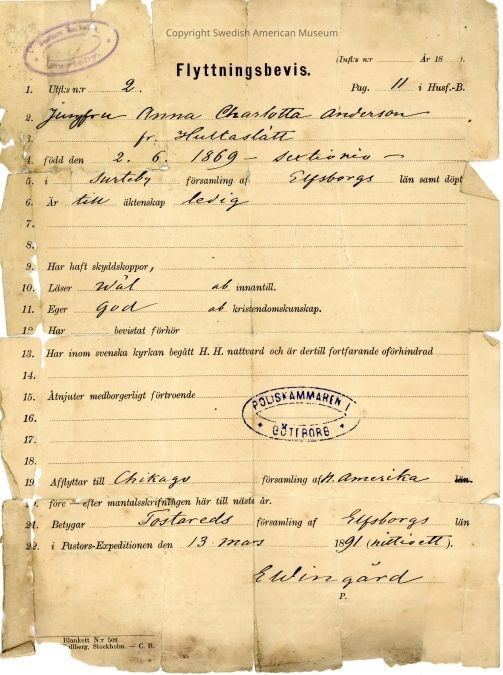 Copyright Swedish American Museum
Flyttningsbevis.
(Infl.: n:r År 18 ).
1. Utfl.: n:r 2. Pag. 11 i Husf.-B.
2. Jungfru Anna Charlotta Anderson
3. fr. Hultaslätt
4. född den 2. 6. 1869 - sextionio -
5. i Surteby församling af Elfsborgs län samt döpt
6. Är till äktenskap ledig
7.
8.
9. Har haft skyddskoppor,
10. Läser wäl ab innantill.
11. Eger god ab kristendomskunskap.
12 Har bevistat förhör
13. Har inom svenska kyrkan begått H. H. nattvard och är dertill fortfarande oförhindrad
14.
15. Åtnjuter medborgerligt förtroende
POLISKAMMAREN I
16.
GÖTEBORG
17.
18.
19. Afflyttar till Chikago församling af N. Amerika län.
före – efter mantalsskrifningen här till näste år.
21. Betygar Tostareds församling af Elfsborgs län
22. i Pastors-Expeditionen den 13 mars 1891 (nittioett).
E Wingård
P.
Blankett N:r 509.
Stockholm. — C. B.